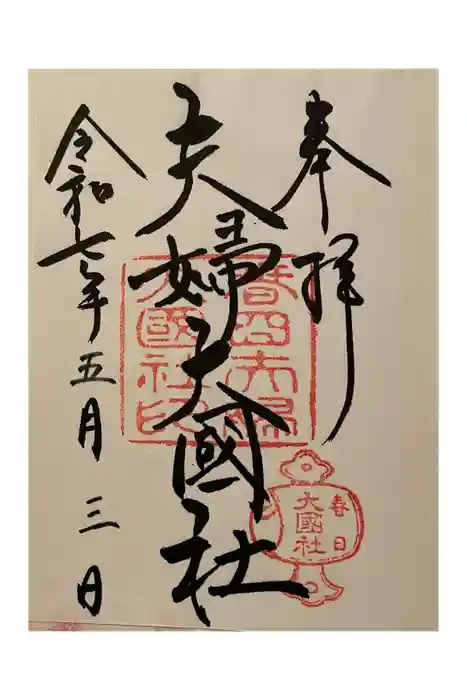 奉拝
夫婦大國社
春日夫婦
大國社印
春日
大國社
令和七年五月三日